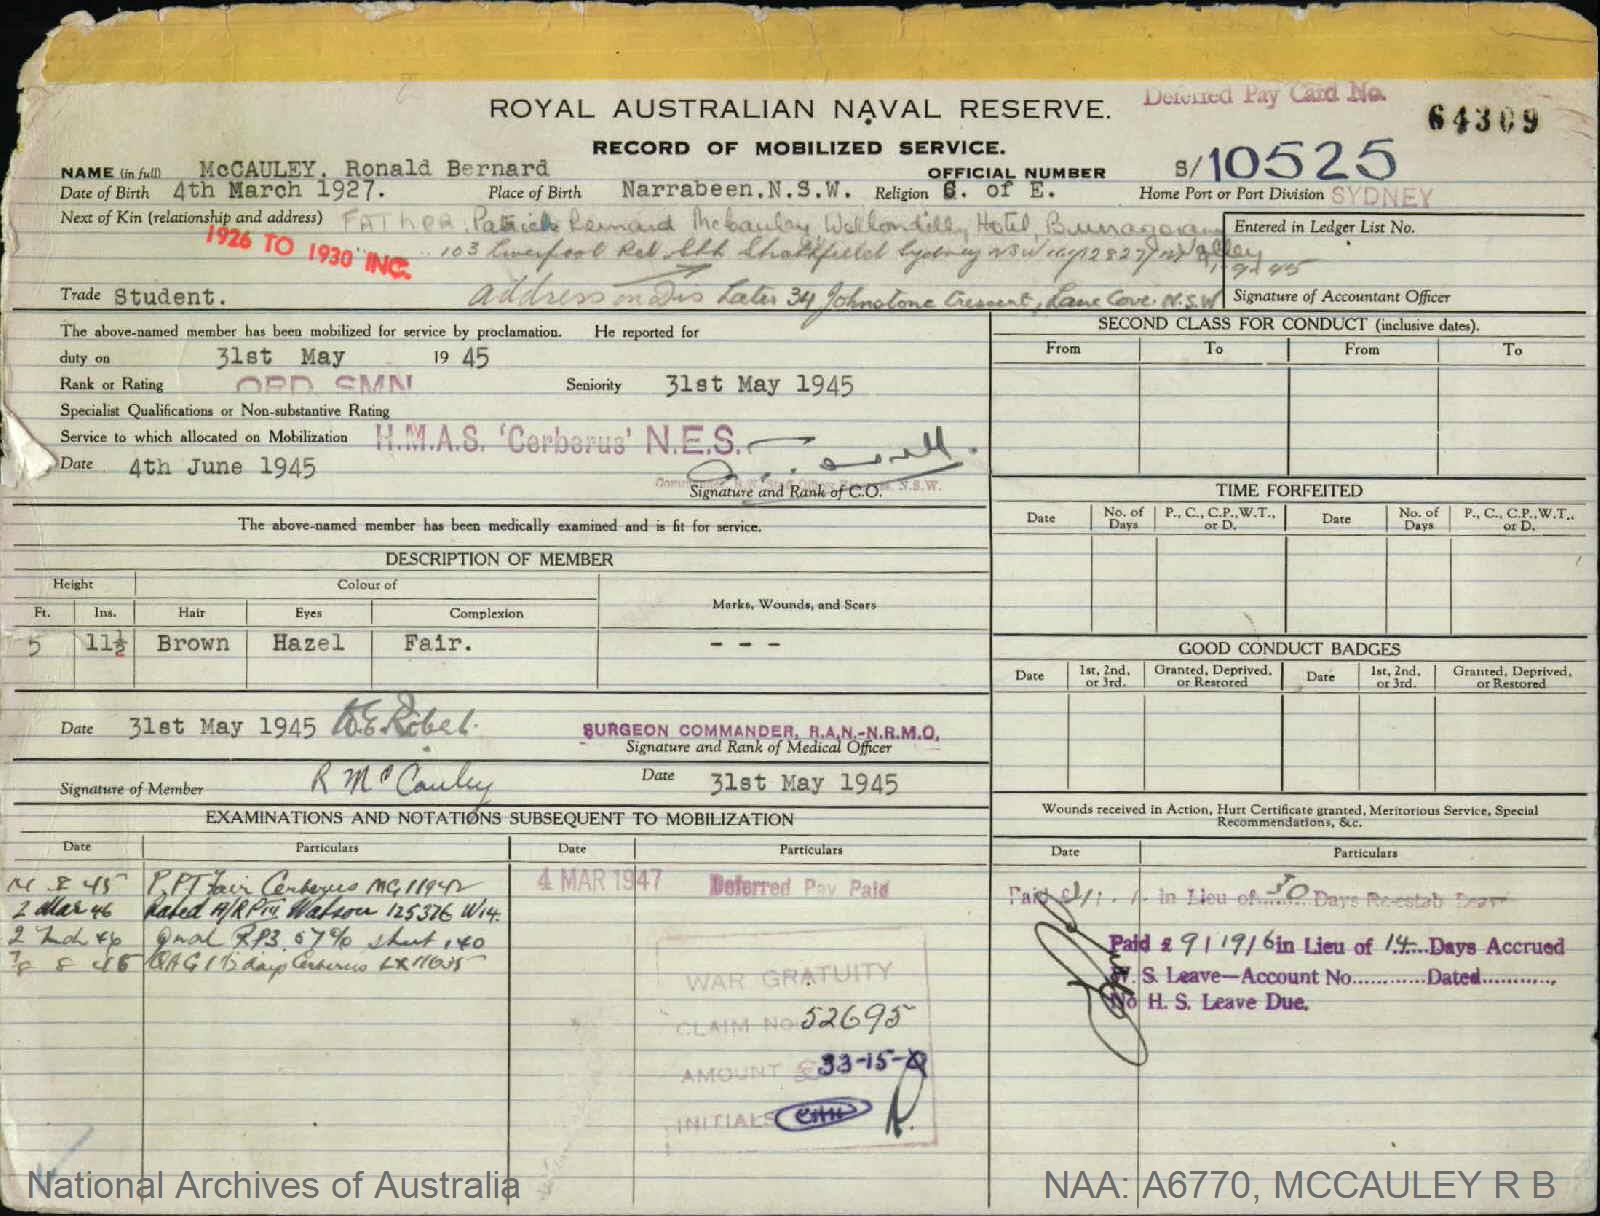 Deferred Pay Card No.
64309
ROYAL AUSTRALIAN NAVAL RESERVE.
RECORD OF MOBILIZED SERVICE.
NAME (in full) McCAULEY. Ronald Bernard OFFICIAL NUMBER S/10525
Date of Birth 4th March 1927. Place of Birth Narrabeen.N.S.W. Religion C. of E. Home Port or Port Division SYDNEY
Next of Kin (relationship and address) FATHER. Patrick Bernard McCauley Wollondilly Hotel, Entered in Ledger List No.
1926 TO 1930 INC.
103 Liverpool Rd. Sth Strathfield Sydney NSW
Trade Student. Address on Dis Later 34 Johnstone Crescent, Lane Cove. N.S.W Signature of Accountant Officer
The above-named member has been mobilized for service by proclamation. He reported for
duty on 31st May 1945
Rank or Rating ORD SMN Seniority 31st May 1945
Specialist Qualifications or Non-substantive Rating
Service to which allocated on Mobilization H.M.A.S. 'Cerberus' N.E.S.
Date 4th June 1945
Signature and Rank of C.O.
The above-named member has been medically examined and is fit for service.
DESCRIPTION OF MEMBER
Height Colour of Marks, Wounds, and Scars
Ft. Ins. Hair Eyes Complexion
5 11½ Brown Hazel Fair. - - -
Date 31st May 1945 SURGEON COMMANDER, R.A.N.-N.R.M.O.
Signature and Rank of Medical Officer
Signature of Member R McCauley Date 31st May 1945
EXAMINATIONS AND NOTATIONS SUBSEQUENT TO MOBILIZATION
Date Particulars Date Particulars
14 8 45 P.P.T Fair Cerberus MG 11942
2 Mar 46 Rated A/RP III Watson 125376 W14.
Qual RP3. 67% sheet 140
Cerberus
4 MAR 1947 Deferred Pay Paid
WAR GRATUITY
CLAIM NO 52695
AMOUNT £33-15-0
INITIALS
SECOND CLASS FOR CONDUCT (inclusive dates).
From To From To
TIME FORFEITED
Date No. of Days P., C., C.P., W.T., or D. Date No. of Days P., C., C.P., W.T., or D.
GOOD CONDUCT BADGES
Date 1st, 2nd, or 3rd. Granted, Deprived, or Restored Date 1st, 2nd, or 3rd. Granted, Deprived, or Restored
Wounds received in Action, Hurt Certificate granted, Meritorious Service, Special
Recommendations, &c.
Date Particulars
Paid in Lieu of 30 Days Re-estab
Paid £ 9/19/6 in Lieu of 14 Days Accrued
W. S. Leave—Account No............Dated............
No H. S. Leave Due.
National Archives of Australia
NAA: A6770, MCCAULEY R B